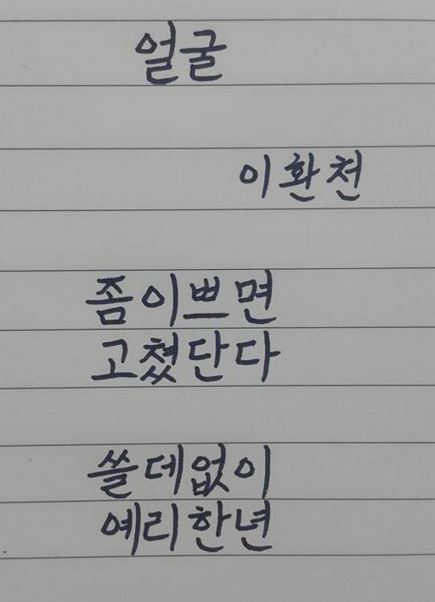 얼굴
이환천
좀이쁘면
고쳤단다
쓸데없이
예리한년